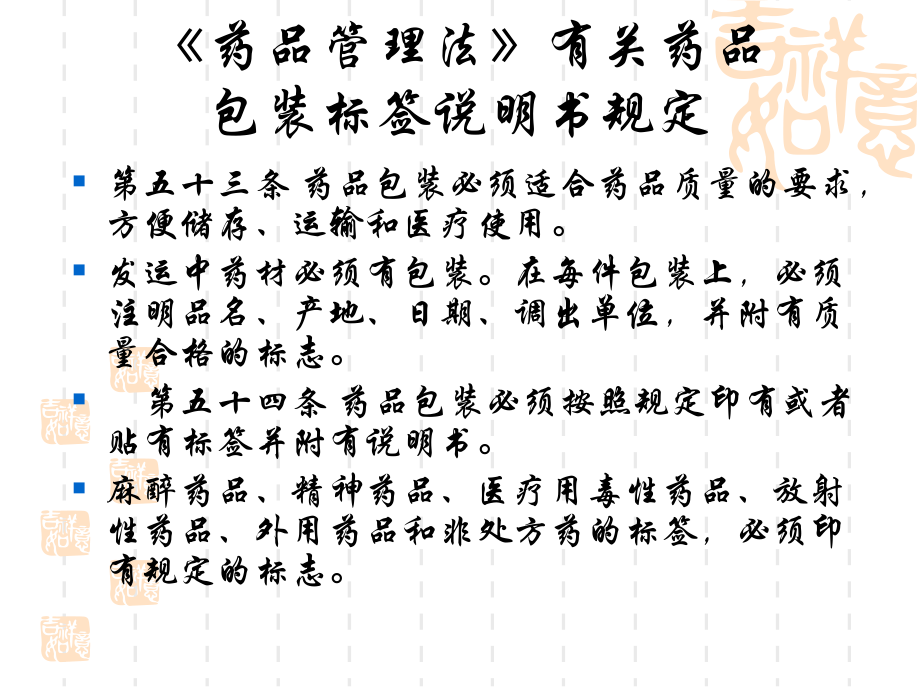 《药品管理法》有关药品
包装标签说明书规定
吉祥
如意
第五十三条 药品包装必须适合药品质量的要求，
方便储存、运输和医疗使用。
发运中药材必须有包装。在每件包装上，必须
注明品名、产地、日期、调出单位，并附有质
量合格的标志。
第五十四条 药品包装必须按照规定印有或者
贴有标签并附有说明书。
麻醉药品、精神药品、医疗用毒性药品、放射
性药品、外用药品和非处方药的标签，必须印
有规定的标志。
吉祥
如意
吉祥
如意
吉祥
如意
吉祥
如意
吉祥
如意
吉祥
如意